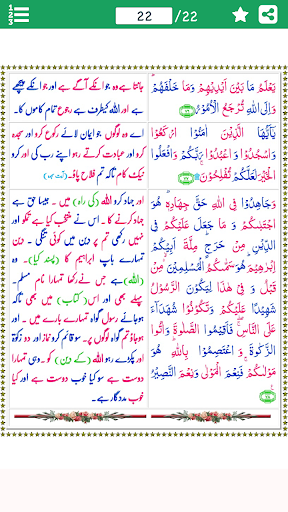 22 /22
يَعْلَمُ مَا بَيْنَ اَيْدِيْهِمْ وَمَا خَلْفَهُمْ ؕ
وَاِلَى اللّٰهِ تُرْجَعُ الْاُمُوْرُ
يٰۤاَيُّهَا الَّذِيْنَ اٰمَنُوا ارْكَعُوْا
وَاسْجُدُوْا وَاعْبُدُوْا رَبَّكُمْ وَافْعَلُوا
الْخَيْرَ لَعَلَّكُمْ تُفْلِحُوْنَ
وَجَاهِدُوْا فِى اللّٰهِ حَقَّ جِهَادِهٖ ؕ هُوَ
اجْتَبٰىكُمْ وَ مَا جَعَلَ عَلَيْكُمْ فِى
الدِّيْنِ مِنْ حَرَجٍ ؕ مِلَّةَ اَبِيْكُمْ
اِبْرٰهِيْمَ ؕ هُوَ سَمّٰىكُمُ الْمُسْلِمِيْنَ ۙ مِنْ
قَبْلُ وَ فِىْ هٰذَا لِيَكُوْنَ الرَّسُوْلُ
شَهِيْدًا عَلَيْكُمْ وَتَكُوْنُوْا شُهَدَآءَ
عَلَى النَّاسِ ۖۚ فَاَقِيْمُوا الصَّلٰوةَ وَ اٰتُوا
الزَّكٰوةَ وَ اعْتَصِمُوْا بِاللّٰهِ ؕ هُوَ
مَوْلٰىكُمْ ۚ فَنِعْمَ الْمَوْلٰى وَنِعْمَ النَّصِيْرُ
جانتا ہے وہ جو انکے آگے ہے اور جو انکے پیچھے
ہے اور اللہ کیطرف ہے رجوع تمام کاموں کا۔
اے وہ لوگوں جو ایمان لائے رکوع کرو اور سجدہ
اور عبادت کرتے رہو اپنے رب کی اور کرو
نیک کام تاکہ تم فلاح پاؤ۔
اور جہاد کرو اللہ (کی راہ) میں۔ جیسا حق ہے
جہاد کرنے کا۔ اس نے منتخب کیا ہے تمکو اور
نہیں رکھی تم پر دین میں کوئی تنگی۔ دین
تمہارے باپ ابراہیم کا (پسند کیا)۔
(اللہ) ہے جس نے رکھا تمہارا نام مسلم۔
پہلے بھی اور اس (کتاب) میں بھی تاکہ
ہو جائے رسول گواہ تمہارے بارے میں۔ اور
ہو جاؤ تم گواہ لوگوں پر۔ سو قائم کرو نماز اور دو زکوٰۃ
اور پکڑے رہو اللہ (کے دین) کو۔ وہی تمہارا
دوست ہے سو کیا خوب دوست ہے اور کیا
خوب مددگار ہے۔